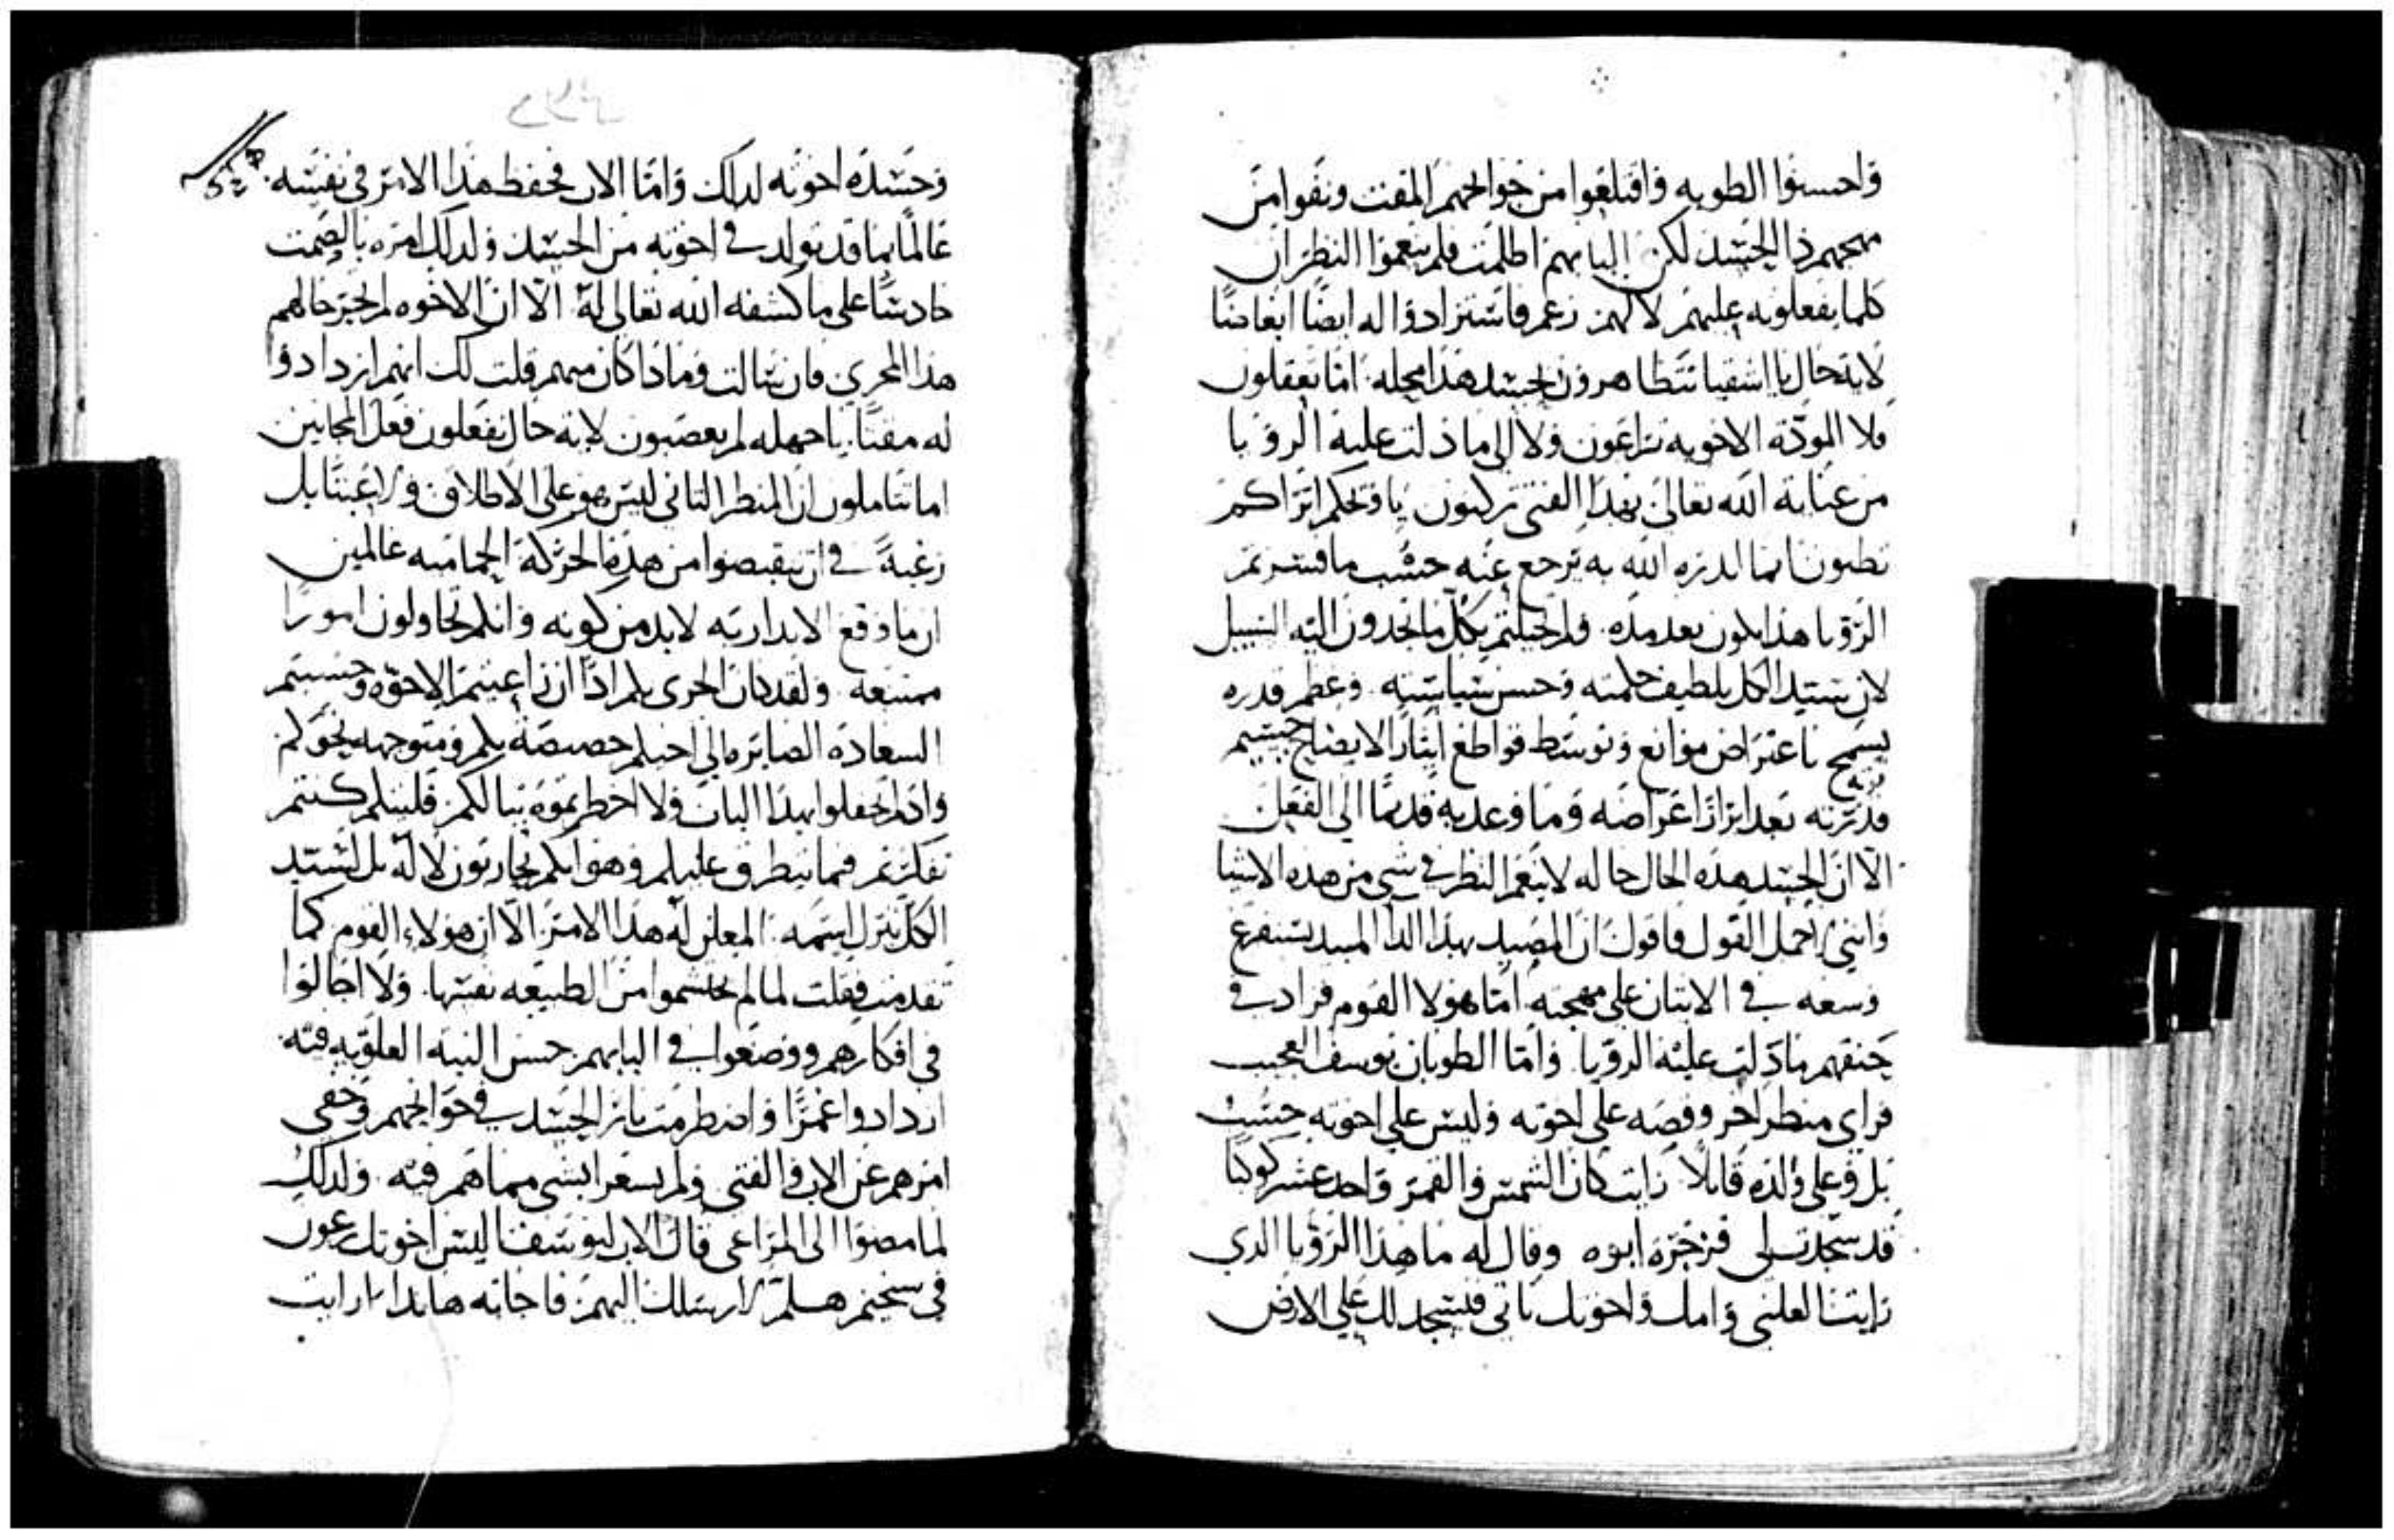 واحسنوا الطويه واقتلعوا من جوانحهم المقت ونقوا من
مهجهم دا الحسد لكن البابهم اظلمت فلم ينعموا النظر ان
كلما يفعلونه عليهم لا لهم زعم فاستزادوا له ايضًا ابغاضًا
لاية حال يا اشقيا تتظاهرون بحسد هذا محله اما تعقلون
فلا المودة الاخويه تراعون ولا الى ما دلت عليه الرؤيا
من عناية الله تعالى بهذا الفتى تركنون يا ويحكم اتراكم
تظنون ان ما انذره الله به يرجع عنه حسب ما فسرتم
الرؤيا هذا يكون بعد مده ولو احتلتم بكل ما تجدون اليه السبيل
لان سيد الكل بلطيف حكمته وحسن سياسته وعظم قدره
يسمح باعتراض موانع وتوسط قواطع ايثار الايضاح جسيم
قدرته بعد ابراز اغراضه وما وعد به قديمًا الى الفعل
الا ان الحسد هذه الحال حاله لا ينعم النظر في شي من هذه الاشيا
وانني اجمل القول فاقول ان المصيد بهذا الدا المبيد يستفرغ
وسعه في الاتيان على مهجته اما هولا القوم فزاد في
حنقهم ما دلت عليه الرؤيا واما الطوبان يوسف العجيب
فراى منظر اخر وقصه على اخوته وليس على اخوته حسب
بل وعلى والده قايلاً رايت كان الشمس والقمر واحد عشر كوكبًا
قد سجدت لي فزجره ابوه وقال له ما هذا الرؤيا الذي
رايتها لعلني وامك واخوتك ناتي فنسجد لك على الارض
وحسده اخوته لذلك واما الاب فحفظ هذا الامر في نفسه
عالمًا بما قد تولد في اخوته من الحسد ولذلك امره بالصمت
حادسًا على ما كشفه الله تعالى له الا ان الاخوه لم تجر حالهم
هذا المجرى فان سالت وماذا كان منهم قلت لك انهم ازدادوا
له مقتًا يا جهله لم تغضبون لاية حال تفعلون فعل المجانين
اما تتاملون ان المنظر الثاني ليس هو على الاطلاق ولا عبثًا بل
رغبةً في ان تنقبضوا من هذه الحركة الحماميه عالمين
ان ما وقع الانذار به لابد من كونه وانكم تحاولون امورًا
ممتنعه ولقد كان الحرى بكم اذًا ان راعيتم الاخوه وحسبتم
السعادة الصايره الى اخيكم خصيصة بكم ومتوجهه نحوكم
واذ لم تحفلوا بهذا الباب ولا اخطرتموه ببالكم فليتكم كنتم
تفكرتم فيما يتطرق عليكم وهو انكم تحاربون لا له بل لسيد
الكل تنزل اسمه المعلن له هذا الامر الا ان هولاء القوم كما
تقدمت فقلت لما لم يحتشموا من الطبيعه نفسها ولا اجالوا
في افكارهم ووضعوا في البابهم حسن النيه العلويه فيه
ازدادوا غمرًا واضطرمت نار الحسد في جوانحهم وخفى
امرهم عن الاب والفتى ولم يشعرا بشي مما هم فيه ولذلك
لما مضوا الى المراعي قال الاب ليوسف اليس اخوتك يرعون
في سخيم هلم لارسلك اليهم فاجابه هانذا ارايت